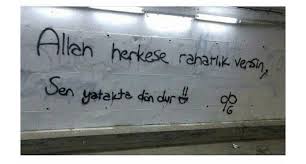 Allah herkese rahatlık versin,
Sen yatakta dön dur